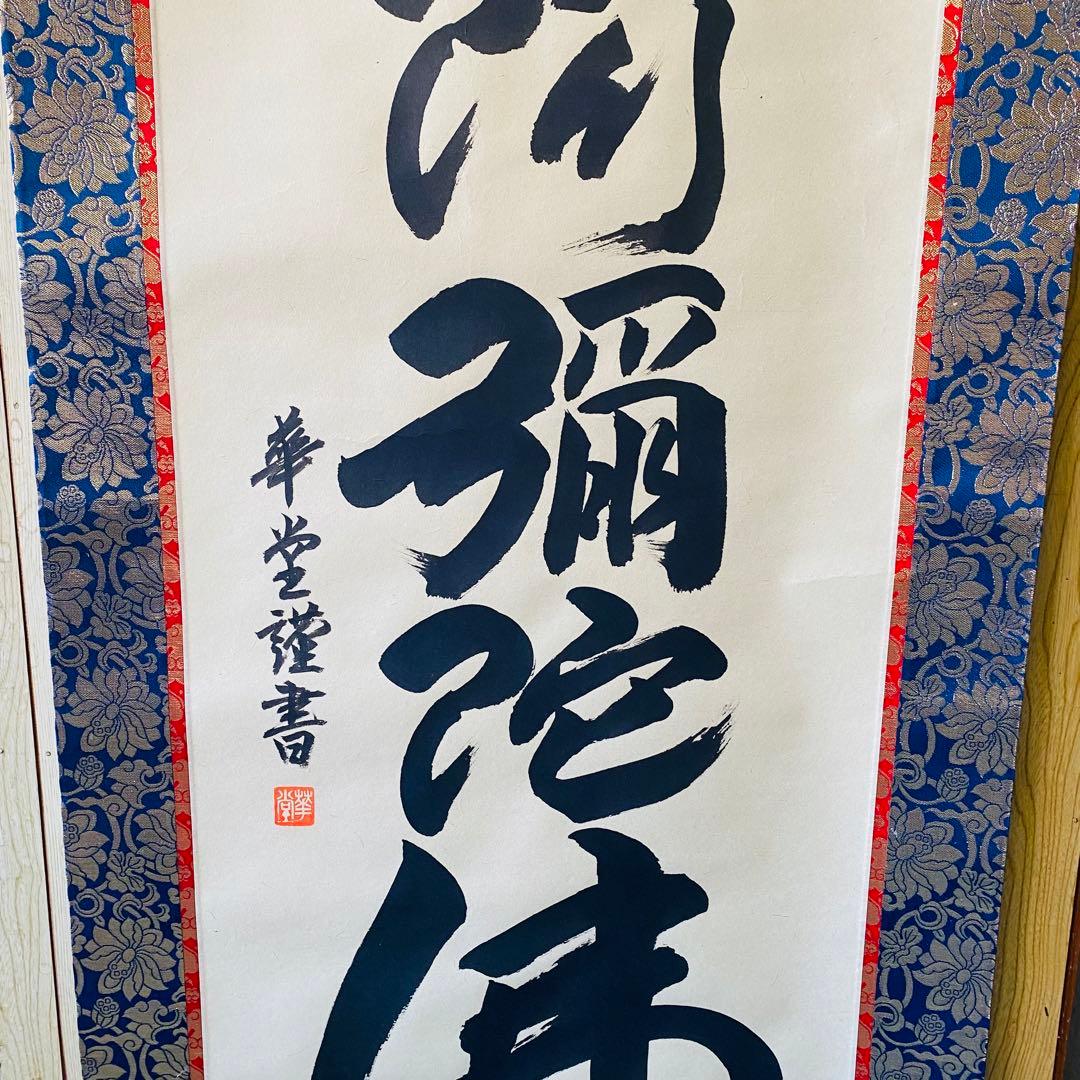 阿彌陀佛
華堂謹書
華堂